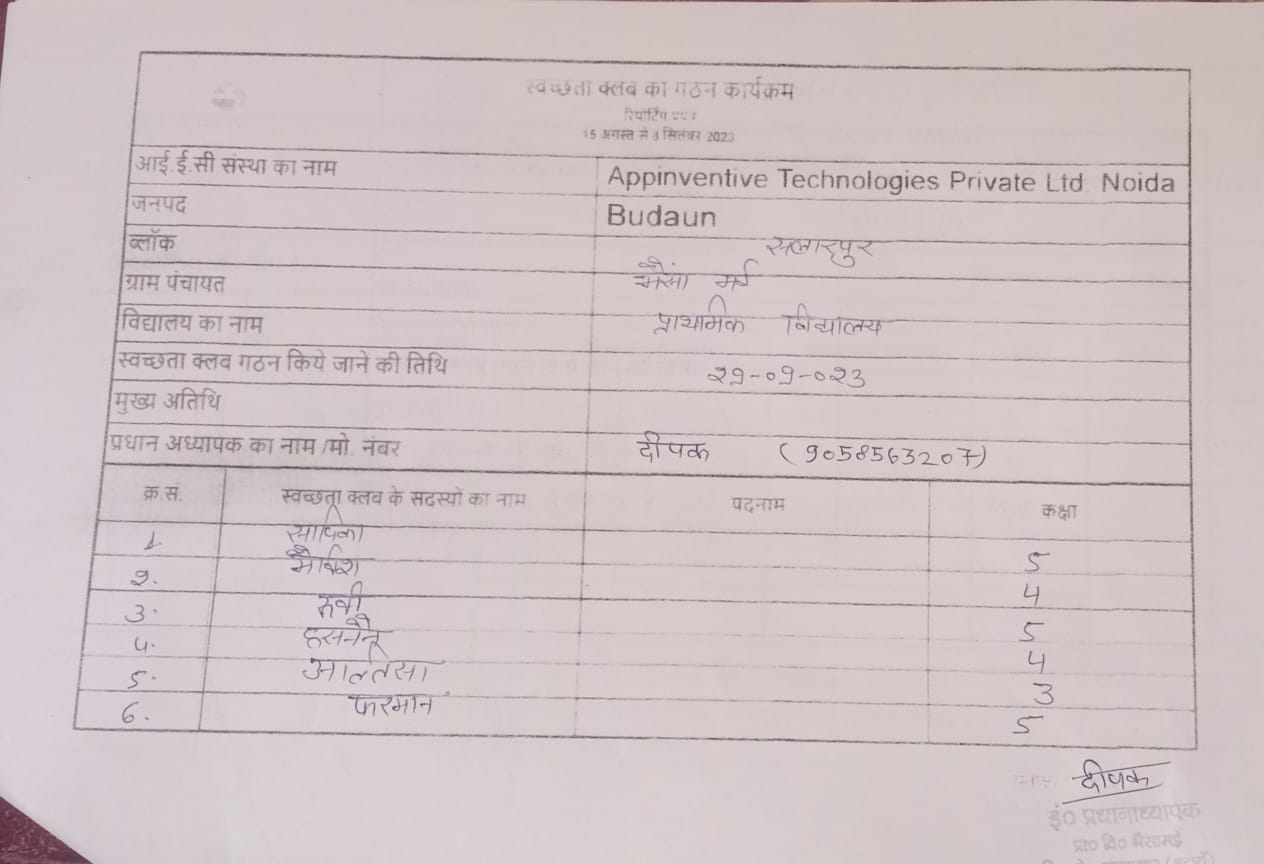 स्वच्छता क्लब का गठन कार्यक्रम
रिपोर्टिंग प्रपत्र
15 अगस्त से 8 सितंबर 2023
आई.ई.सी संस्था का नाम Appinventive Technologies Private Ltd. Noida
जनपद Budaun
ब्लॉक सलारपुर
ग्राम पंचायत भैंसा मई
विद्यालय का नाम प्राथमिक विद्यालय
स्वच्छता क्लव गठन किये जाने की तिथि २१-०१-०२३
मुख्य अतिथि
प्रधान अध्यापक का नाम /मो. नंबर दीपक (9058563207)
क्र.सं. स्वच्छता क्लव के सदस्यों का नाम पदनाम कक्षा
1. 5
२. 4
3. रुबी 5
4. हसनैन 4
5. 3
6. फरमान 5
दीपक
इं० प्रधानाध्यापक
प्रा० वि० भैसामई